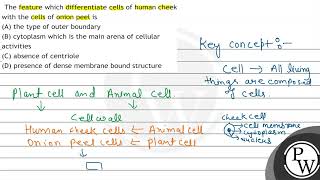 The feature which differentiate cells of human cheek
with the cells of onion peel is
(A) the type of outer boundary
(B) cytoplasm which is the main arena of cellular
activities
(C) absence of centriole
(D) presence of dense membrane bound structure
Key concept :-
Cell → All living
things are composed
of cells.
Plant cell and Animal cell
Cellwall
Human cheek cells ← Animal cell
Onion peel cells ← Plant cell
cheek cell
cell membrane
cytoplasm
nucleus
PW